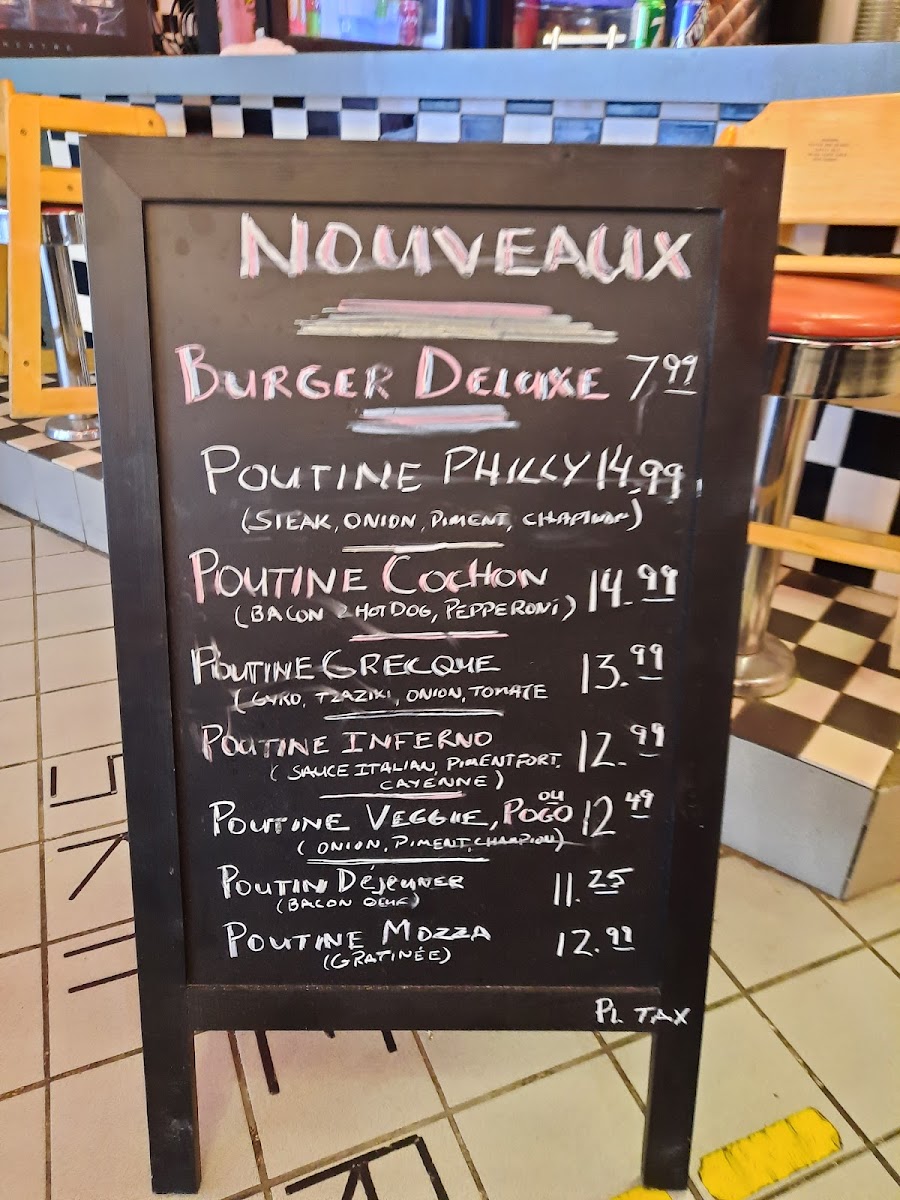 NOUVEAUX
BURGER DELUXE 7.99
POUTINE PHILLY 14.99
(STEAK, ONION, PIMENT, CHAPINON)
POUTINE COCHON 14.99
(BACON 2 HOTDOG, PEPPERONI)
POUTINE GRECQUE 13.99
(GYRO, TZAZIKI, ONION, TOMATE
POUTINE INFERNO 12.99
(SAUCE ITALIAN, PIMENT FORT,
CAYENNE)
POUTINE VEGGIE, OU POGO 12.49
(ONION, PIMENT, CHAMPION)
POUTIN DÉJEUNER 11.25
(BACON OEUF)
POUTINE MOZZA 12.99
(GRATINÉE)
PL TAX